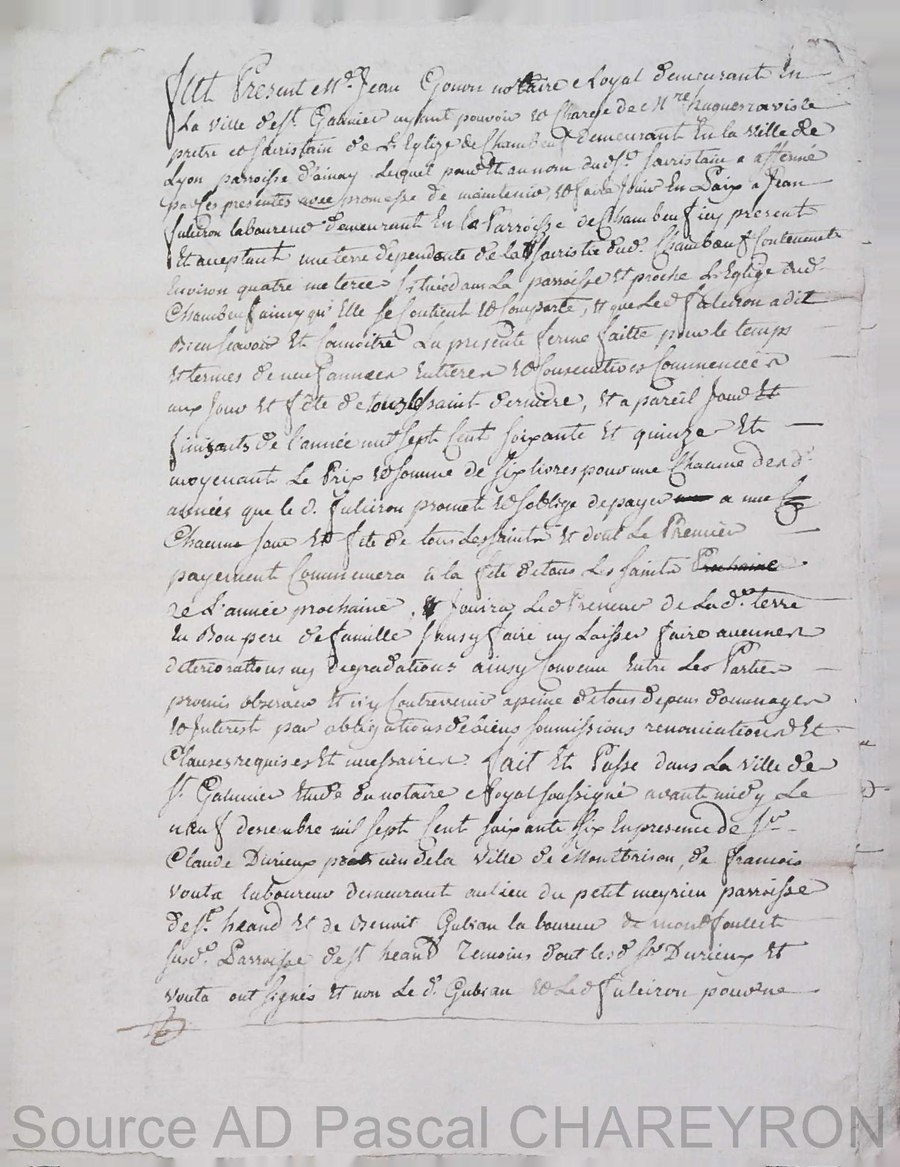 Fut Present Me. Jean Gonon notaire Royal demeurant En
La ville de st. Galmier ayant pouvoir et Charge de Mre. hugues raviste
pretre et sacristain de L'Eglize de Chambeuf demeurant En la ville de
Lyon parroisse d'ainay Lequel pour et au nom dud. Sr. sacristain a affermé
par Ces presentes avec promesse de maintenir et faire jouir En Paix a Jean
fuleiron laboureur demeurant En la Parroisse de Chambeuf icy present
Et aceptant une terre dependante de La Sacristie dud. Chambœuf Contenant
Environ quatre meterée situéé dans La parroisse et proche L'Eglize dud.
Chambeuf ainsy qu'Elle se Contient et Comporte, et que Led. fuleiron a dit
Bien scavoir Et Connoître La presente ferme faitte pour le temps
Et termes de neuf années Entieres et Consecutives Commencéés
aux Jour et fête de tous saint derniere, et a pareil Jour Et
finissants de l'année mil sept Cent soixante et quinze Et
moyenant Le Prix et somme de six livres pour une Chacune desd.
années que le d. fuleiron promet et s'oblige de payer a une
Chacune Jour et fête de tous Les saints et dont Le Premier
payement Commencera a la fête de tous Les saints Prochaine
de L'année prochaine, et Jouira Led. Preneur de Lad. terre
En Bon pere de famille sans y faire ny Laisser faire aucunes
deteriorations ny degradations ainsy Convenu Entre Les Parties
promis observer et n'y Contrevenir a peine de tous depens dommages
et Interest par obligations de biens soumissions renonciations Et
Clauses requises Et necessaires fait Et Passé dans La ville de
St. Galmier Etude du notaire Royal soussigné avant midy Le
neuf decembre mil sept Cent soixante six En presence de Sr.
Claude Durieux praticien de la ville de Montbrison, de francois
vouta laboureur demeurant au lieu du petit meyrieu parroisse
de st. heand et de Benoit Gubian laboureur de
susd. Parroisse de st heand Temoins dont lesd. Sr. Durieux et
vouta ont signés et non Le d. Gubian et Led. fuleiron pour ne
Source AD Pascal CHAREYRON